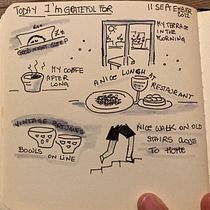 TODAY I'm GRATEFUL FOR
11 SEPTEMBER
2022
GOOD NIGHT SLEEP
MY TERRACE
IN THE
MORNING
MY COFFEE
AFTER
LONG
A NICE LUNCH AT
RESTAURANT
VINTAGE
BOWLS
ON LINE
NICE WALK ON OLD
STAIRS CLOSE
TO HOME